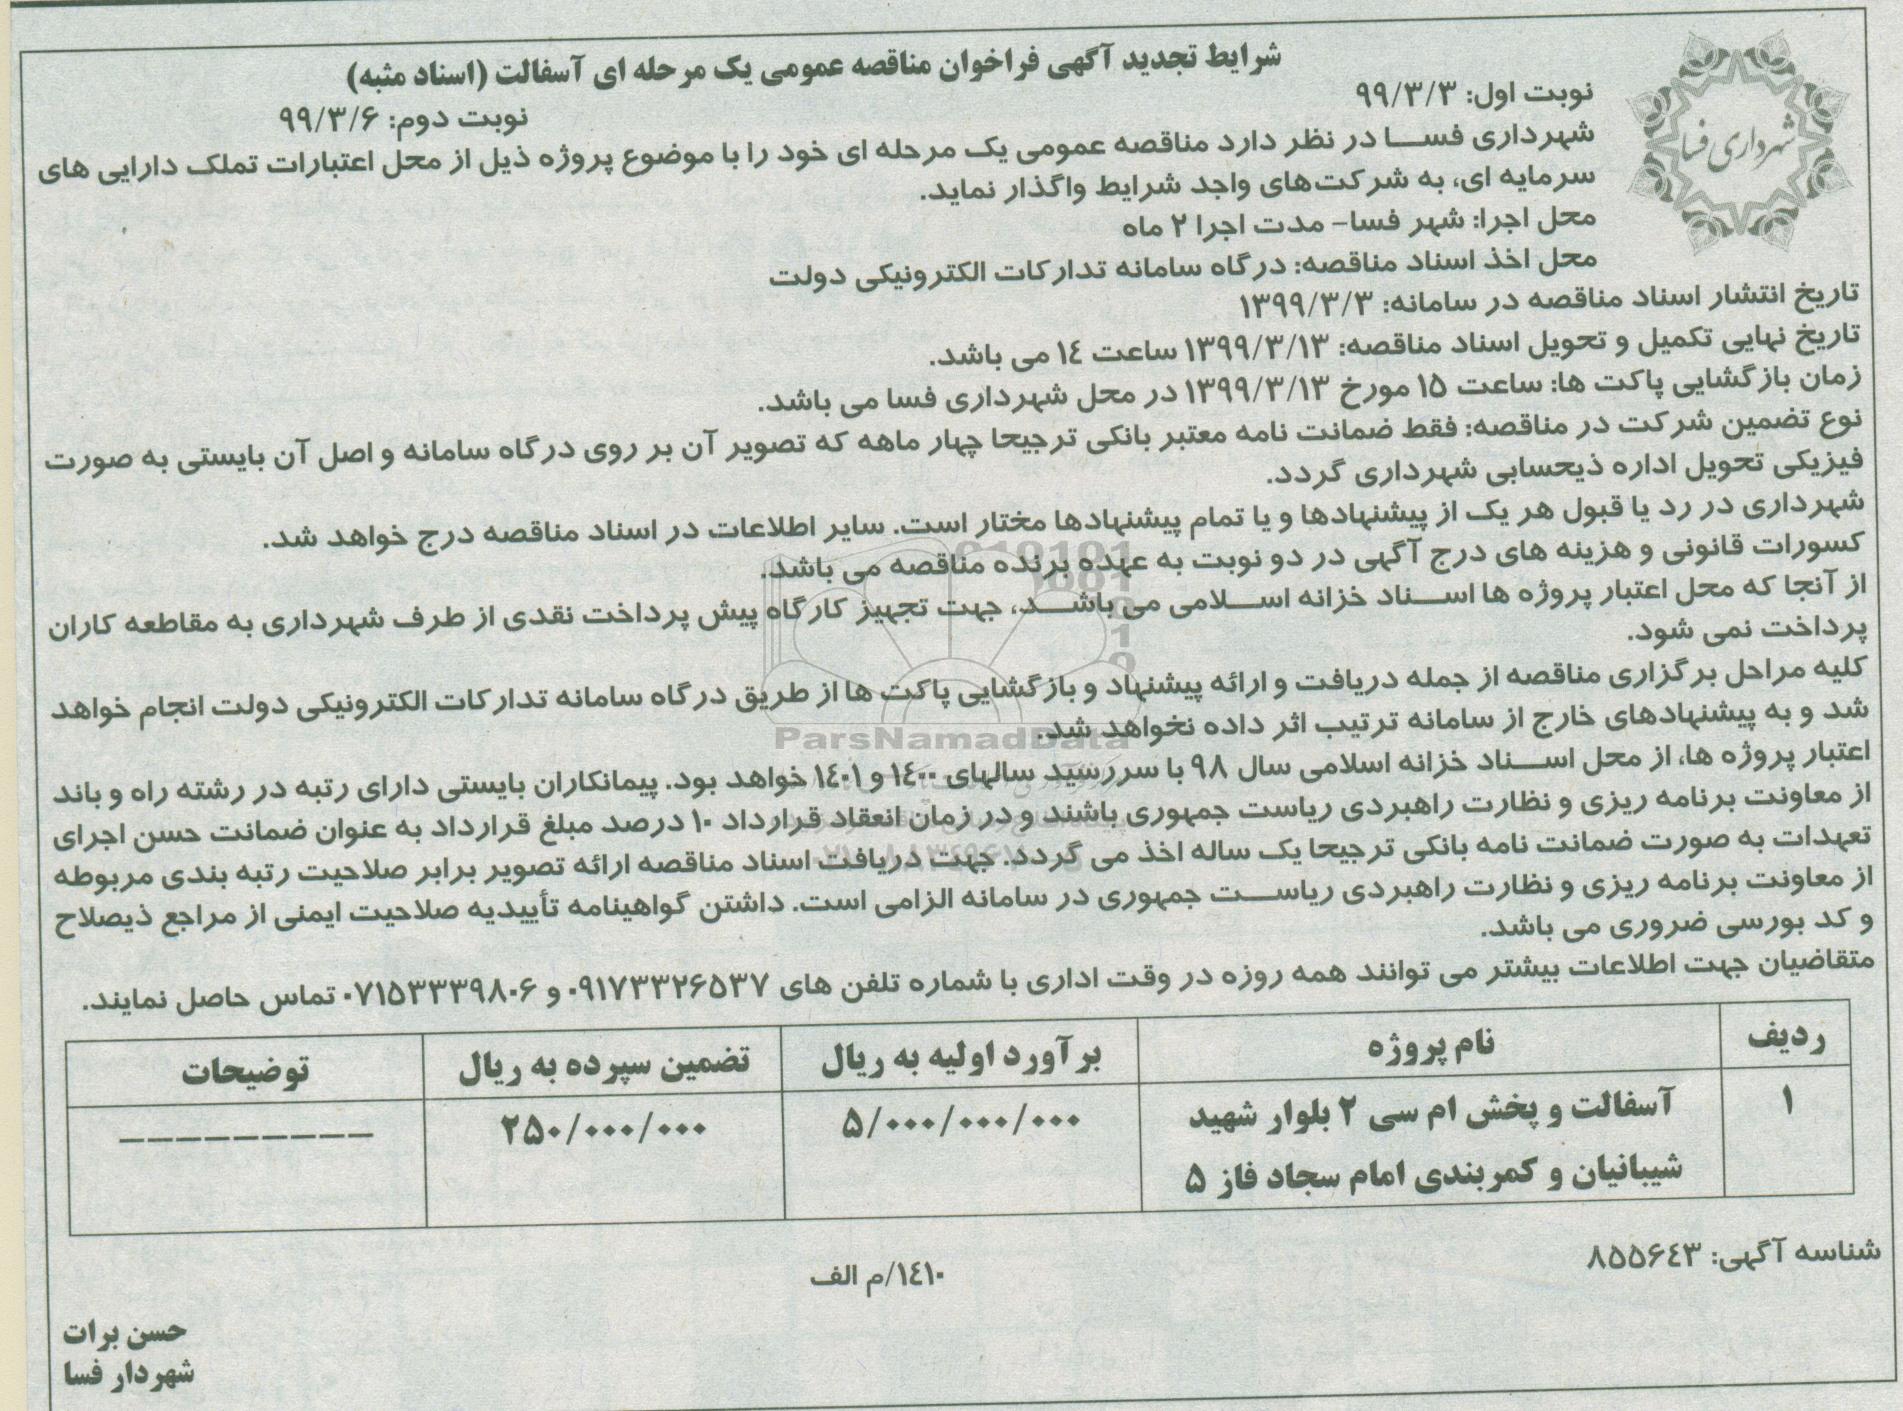 شهرداری فسا
شرایط تجدید آگهی فراخوان مناقصه عمومی یک مرحله ای آسفالت (اسناد مثبه)
نوبت اول: ۹۹/۳/۳
نوبت دوم: ۹۹/۳/۶
شهرداری فسا در نظر دارد مناقصه عمومی یک مرحله ای خود را با موضوع پروژه ذیل از محل اعتبارات تملک دارایی های
سرمایه ای، به شرکت‌های واجد شرایط واگذار نماید.
محل اجرا: شهر فسا- مدت اجرا ۲ ماه
محل اخذ اسناد مناقصه: درگاه سامانه تدارکات الکترونیکی دولت
تاریخ انتشار اسناد مناقصه در سامانه: ۱۳۹۹/۳/۳
تاریخ نهایی تکمیل و تحویل اسناد مناقصه: ۱۳۹۹/۳/۱۳ ساعت ۱۴ می باشد.
زمان بازگشایی پاکت ها: ساعت ۱۵ مورخ ۱۳۹۹/۳/۱۳ در محل شهرداری فسا می باشد.
نوع تضمین شرکت در مناقصه: فقط ضمانت نامه معتبر بانکی ترجیحا چهار ماهه که تصویر آن بر روی درگاه سامانه و اصل آن بایستی به صورت
فیزیکی تحویل اداره ذیحسابی شهرداری گردد.
شهرداری در رد یا قبول هر یک از پیشنهادها و یا تمام پیشنهادها مختار است. سایر اطلاعات در اسناد مناقصه درج خواهد شد.
کسورات قانونی و هزینه های درج آگهی در دو نوبت به عهده برنده مناقصه می باشد.
از آنجا که محل اعتبار پروژه ها اسناد خزانه اسلامی می باشد، جهت تجهیز کارگاه پیش پرداخت نقدی از طرف شهرداری به مقاطعه کاران
پرداخت نمی شود.
کلیه مراحل برگزاری مناقصه از جمله دریافت و ارائه پیشنهاد و بازگشایی پاکت ها از طریق درگاه سامانه تدارکات الکترونیکی دولت انجام خواهد
شد و به پیشنهادهای خارج از سامانه ترتیب اثر داده نخواهد شد.
ParsNamadData
اعتبار پروژه ها، از محل اسناد خزانه اسلامی سال ۹۸ با سررسید سالهای ۱۴۰۰ و ۱۴۰۱ خواهد بود. پیمانکاران بایستی دارای رتبه در رشته راه و باند
از معاونت برنامه ریزی و نظارت راهبردی ریاست جمهوری باشند و در زمان انعقاد قرارداد ۱۰ درصد مبلغ قرارداد به عنوان ضمانت حسن اجرای
تعهدات به صورت ضمانت نامه بانکی ترجیحا یک ساله اخذ می گردد. جهت دریافت اسناد مناقصه ارائه تصویر برابر صلاحیت رتبه بندی مربوطه
از معاونت برنامه ریزی و نظارت راهبردی ریاست جمهوری در سامانه الزامی است. داشتن گواهینامه تأییدیه صلاحیت ایمنی از مراجع ذیصلاح
و کد بورسی ضروری می باشد.
متقاضیان جهت اطلاعات بیشتر می توانند همه روزه در وقت اداری با شماره تلفن های ۰۹۱۷۳۳۲۶۵۳۷ و ۰۷۱۵۳۳۳۹۸۰۶ تماس حاصل نمایند.
ردیف نام پروژه برآورد اولیه به ریال تضمین سپرده به ریال توضیحات
۱ آسفالت و پخش ام سی ۲ بلوار شهید ۵/۰۰۰/۰۰۰/۰۰۰ ۲۵۰/۰۰۰/۰۰۰ ---------
شیبانیان و کمربندی امام سجاد فاز ۵
شناسه آگهی: ۸۵۵۶۴۳
۱۴۱۰/م الف
حسن برات
شهردار فسا